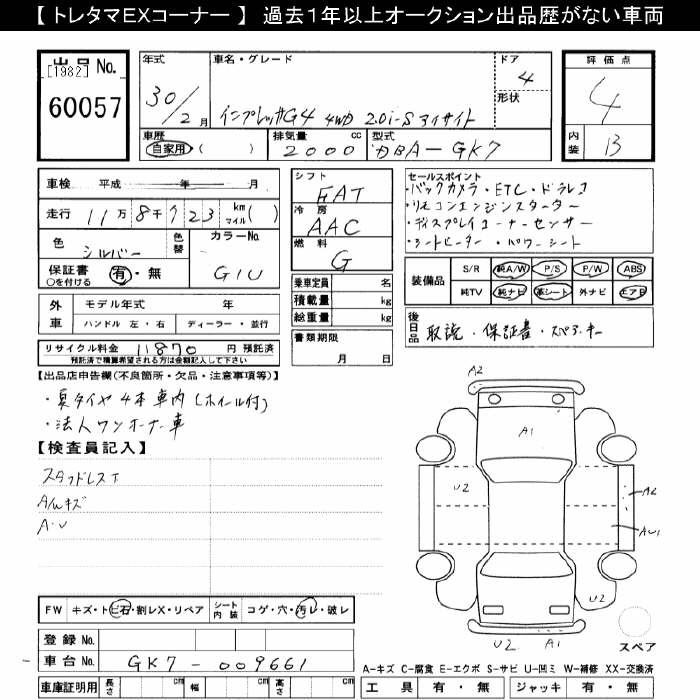 【 トレタマEXコーナー 】 過去1年以上オークション出品歴がない車両
出品 No.
[1982]
60057
年式
30/2月
車名・グレード
インプレッサG4 4WD 2.0i-S アイサイト
ドア
4
形状
評価点
4
内装
B
車歴
自家用 ( )
排気量 cc
2000
型式
DBA-GK7
車検 平成 年 月
走行 11万8千723 km マイル( )
色
シルバー
色替
カラーNo.
G1U
保証書 有・無
○を付ける
外車
モデル年式 年
ハンドル 左・右
ディーラー・並行
リサイクル料金 11870 円 預託済
預託済で積算希望される方は金額記入して下さい
シフト
FAT
冷房
AAC
燃料
G
乗車定員 名
積載量 kg
総重量 kg
書類期限
月 日
セールスポイント
・バックカメラ・ETC・ドラレコ
・リモコンエンジンスターター
・ディスプレイコーナーセンサー
・シートヒーター・パワーシート
装備品
S/R 純A/W P/S P/W ABS
純TV 純ナビ 革シート 外ナビ エアB
後日品
取説・保証書・スペアキー
【出品店申告欄(不良箇所・欠品・注意事項等)】
・夏タイヤ4本車内(ホイール付)
・法人ワンオーナー車
【検査員記入】
スタッドレスT
A/Wキズ
A・U
A2
A1
U2
A2
AU1
U2 A1
スペア
FW キズ・トビ石・割レX・リペア
シート内装 コゲ・穴・汚レ・破レ
登録 No.
車台 No. GK7-009661
車庫証明用 長さ cm 幅 cm 高さ cm
A-キズ C-腐食 E-エクボ S-サビ U-凹ミ W-補修 XX-交換済
工具 有・無 ジャッキ 有・無